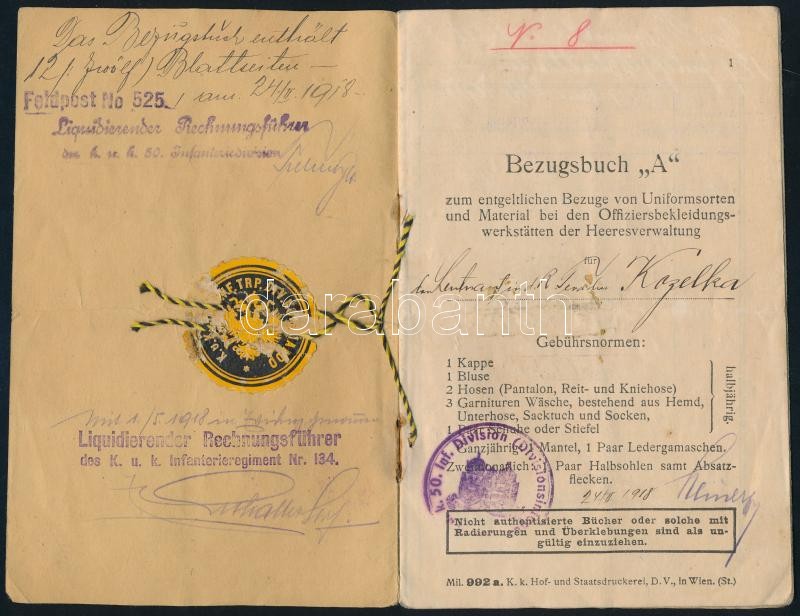 Das Bezugsbuch enthält
12 (: zwölf) Blattseiten –
Feldpost No 525. am 24/II 1918 –
Liquidierender Rechnungsführer
der k. u. k. 50. Infanteriedivision
K.u.K. TRP. DIV.
Mit 1/5 1918 in
Liquidierender Rechnungsführer
des K. u. k. Infanterieregiment Nr. 134.
N. 8
1
Bezugsbuch „A“
zum entgeltlichen Bezuge von Uniformsorten
und Material bei den Offiziersbekleidungs-
werkstätten der Heeresverwaltung
für
Kozelka
Gebührsnormen:
1 Kappe
1 Bluse
2 Hosen (Pantalon, Reit- und Kniehose)
3 Garnituren Wäsche, bestehend aus Hemd,
Unterhose, Sacktuch und Socken,
1 Paar Schuhe oder Stiefel
halbjährig
Ganzjährig 1 Mantel, 1 Paar Ledergamaschen.
Zweimonatlich 1 Paar Halbsohlen samt Absatz-
flecken.
k. 50. Inf. Division (Divisionsin
24/II 1918
Nicht authentisierte Bücher oder solche mit
Radierungen und Überklebungen sind als un-
gültig einzuziehen.
Mil. 992 a. K. k. Hof- und Staatsdruckerei, D. V., in Wien. (St.)
darabanth